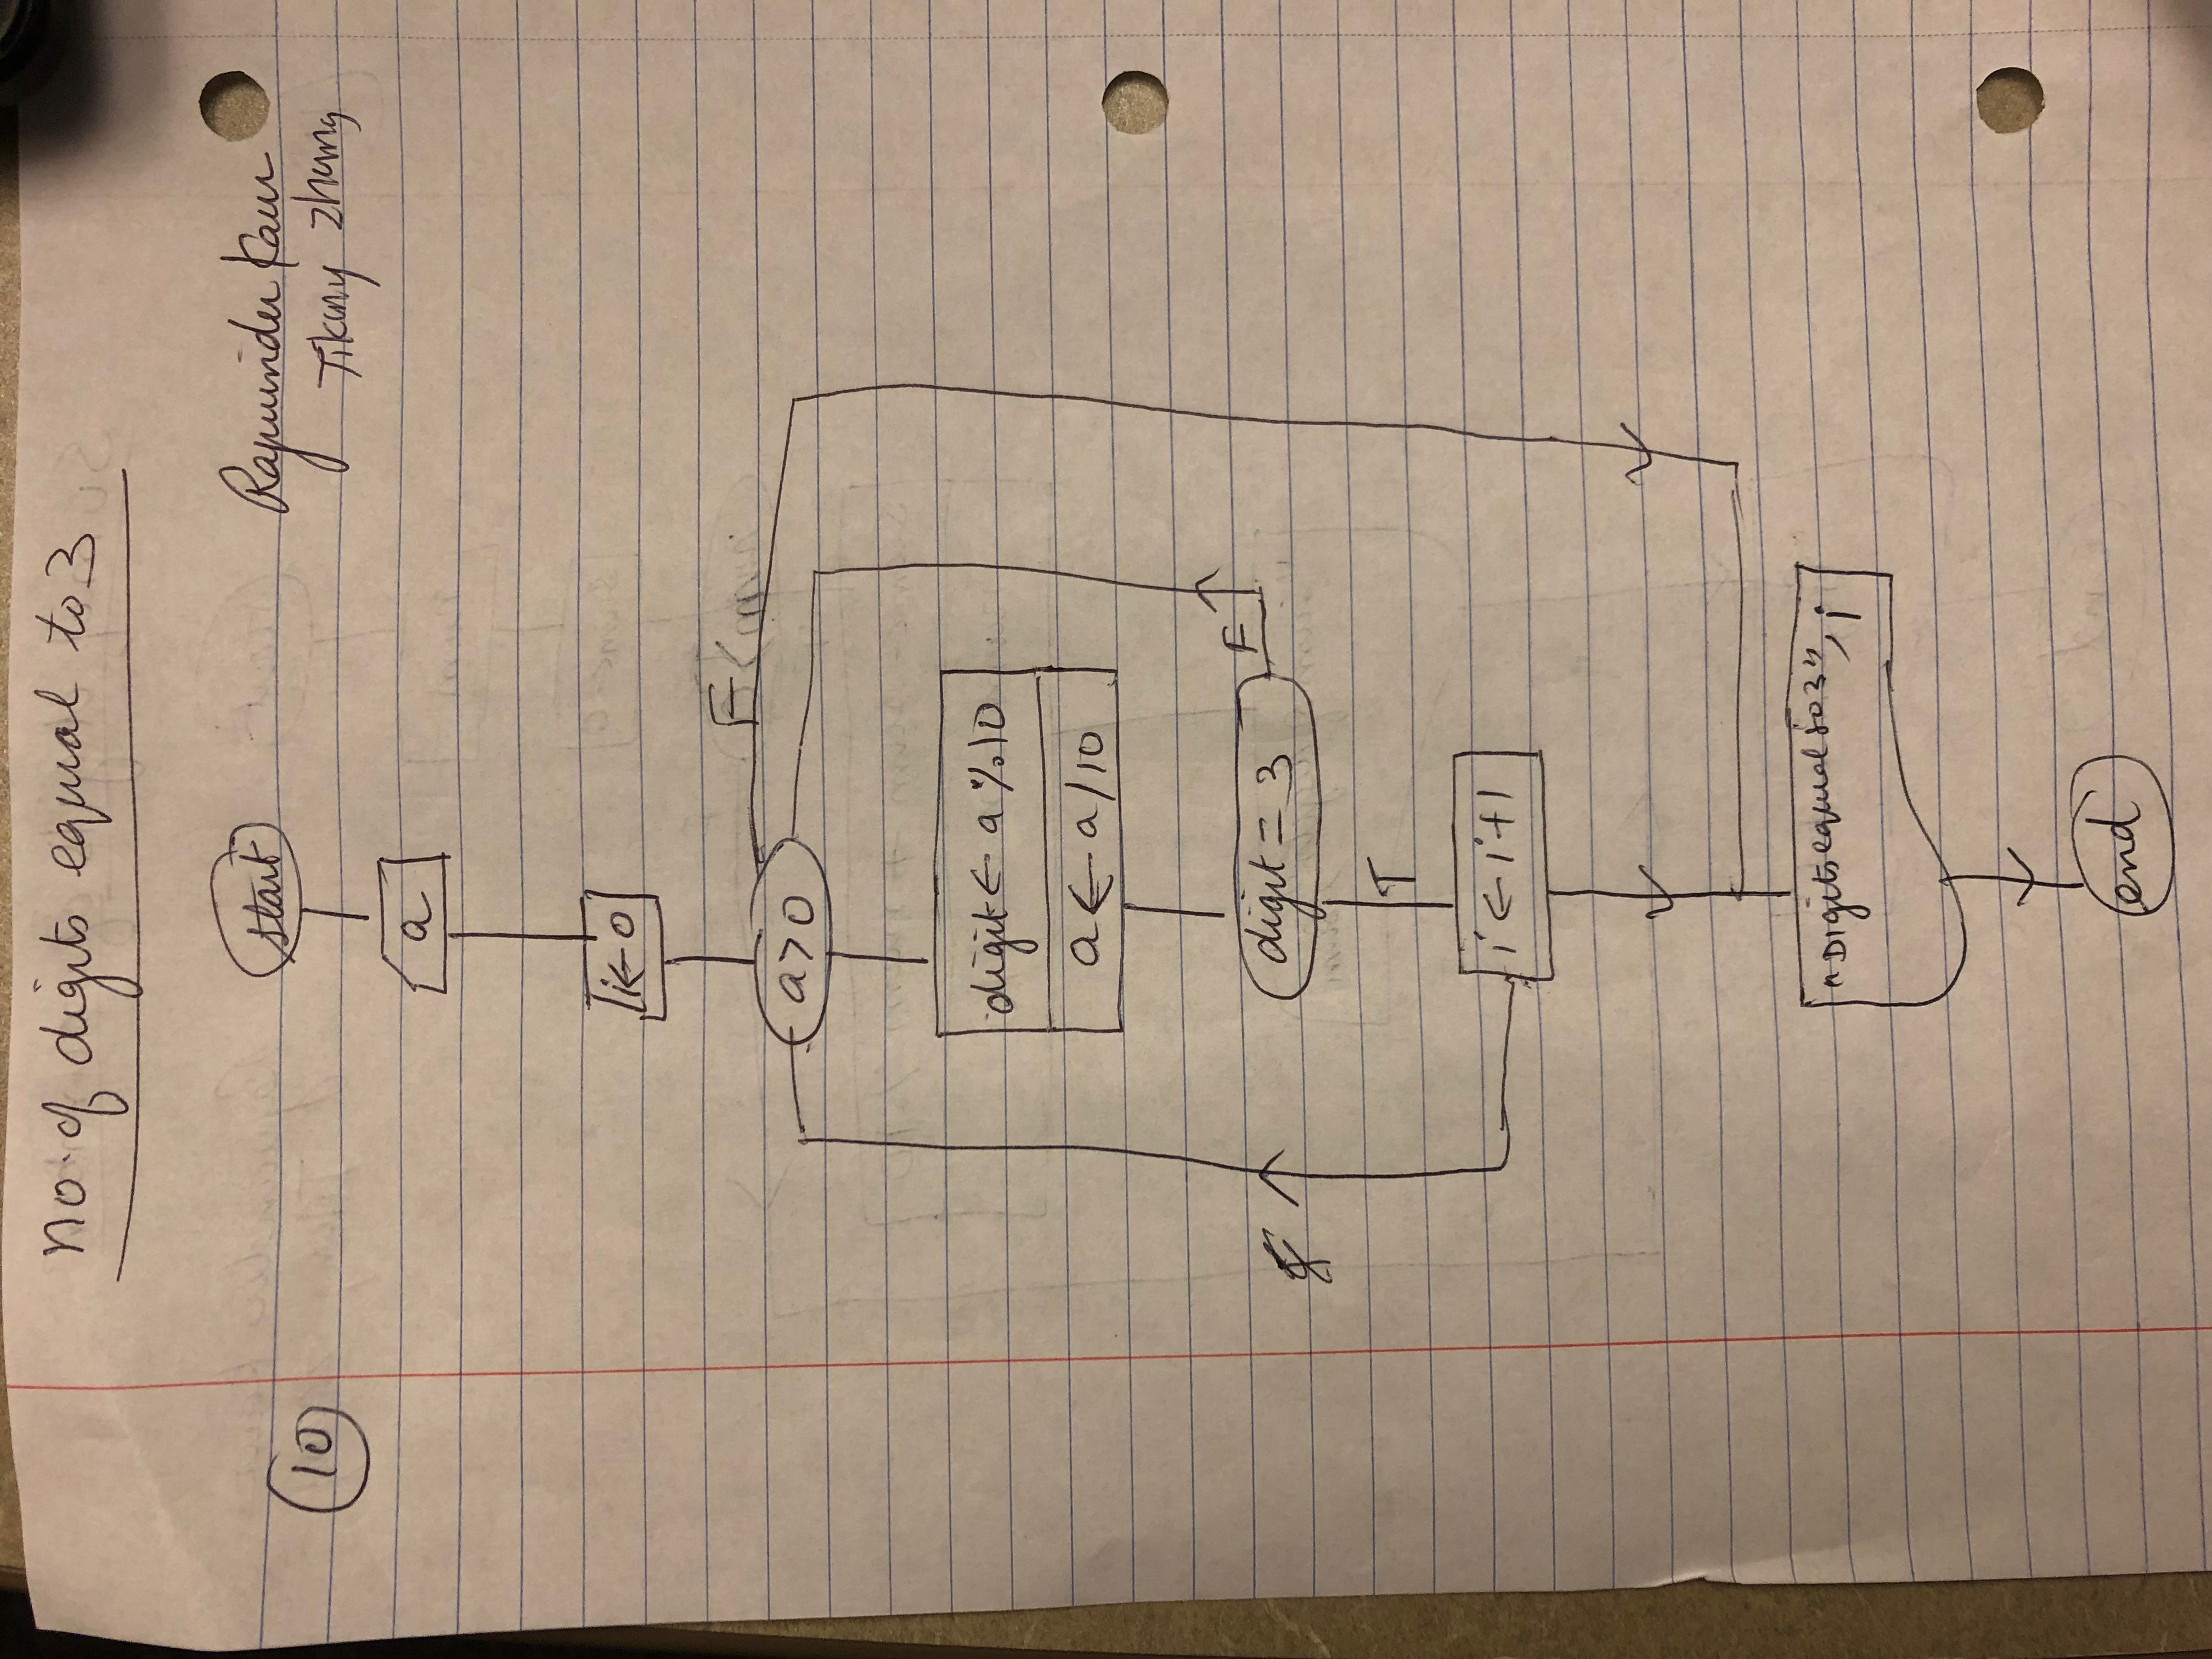 no. of digits equal to 3
start
10
Rajwinder Kaur
Zhang
a
i ← 0
F
a>0
digit ← a % 10
a ← a/10
digit = 3
F
T
i ← i+1
"Digits equal to 3", i
end